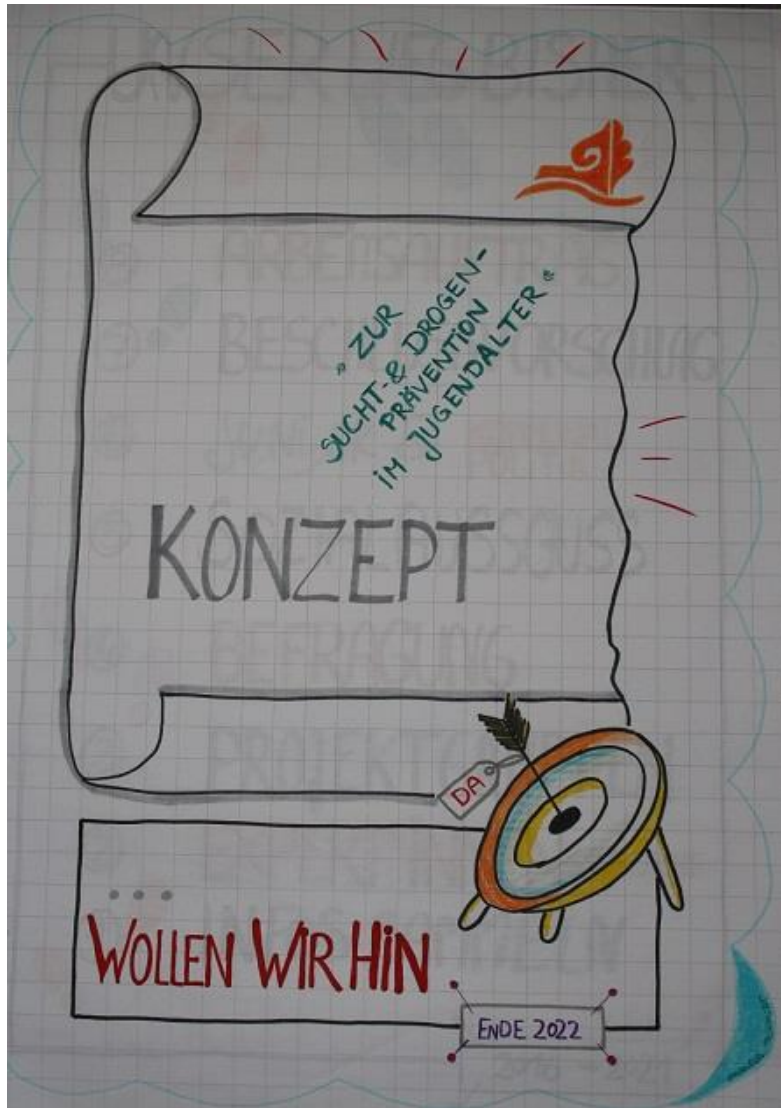 „ ZUR
SUCHT-& DROGEN-
PRÄVENTION
IM JUGENDALTER “
KONZEPT
DA
...
WOLLEN WIR HIN
ENDE 2022